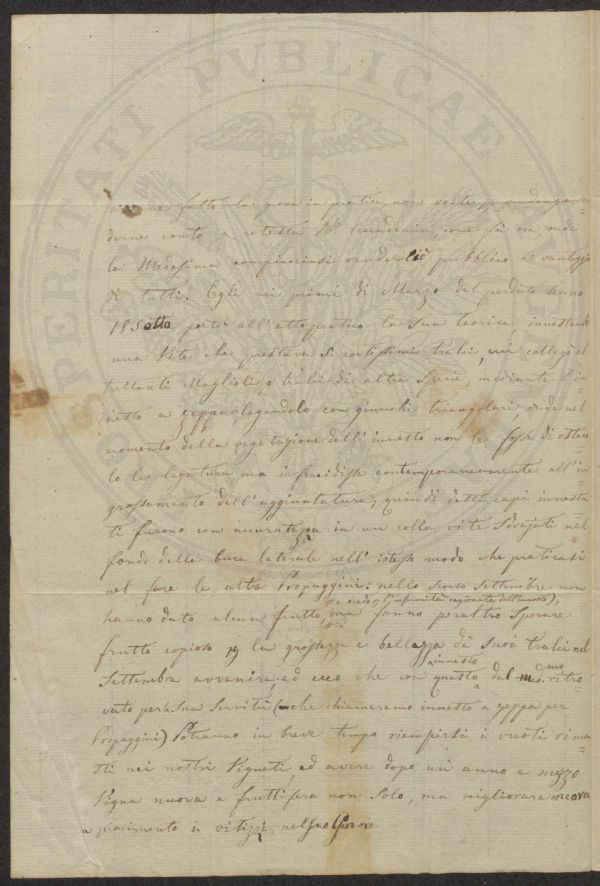 PROSPERITATI PVBLICAE AVGENDAE
fatto la prova in pratica, non volle
conto a cotesta Accademia, come fa ora, onde
la Medesima compiacciasi render ciò pubblico a vantaggio
di tutti. Egli nei primi di Marzo del perduto Anno
18Sotto portò all'atto pratico la Sua teorica, innestando
una Vite che prestava Si cortissimi tralci, vi collegò al
trettanti Maglioli, o tralci di altra Specie, mediante l'in
nesto a zeppa, legandolo con giunchi triangolari onde nel
momento della vegetazione dell'innesto non le fosse di ostaco
lo la legatura, ma infracidisse contemporaneamente all'in
grossamento dell'aggiuntatura; quindi detti capi innesta
ti furono con accuratezza in un colla vite Sdrajati nel
fondo della buca laterale nell'istesso modo che praticasi
nel fare le altre Propaggini: nello Scorso Settembre non
(e credo l'infermità cagionata dall'innesto),
hanno dato alcun frutto, ma fanno peraltro Sperare
frutto copioso per la grossezza e bellezza de Suoi tralci nel
innesto
Settembre avvenire; ed ecco che con questo dal med.mo ritro
vato per la Sua Servitù (che chiameremo innesto a zeppa per
Propaggini) Potranno in breve tempo riempirsi i vuoti rima
sti nei nostri Vigneti, ed avere dopo un anno e mezzo
Vigna nuova e fruttifera non Solo, ma migliorare ancora
a piacimento i vitizzi nel Suo Genere